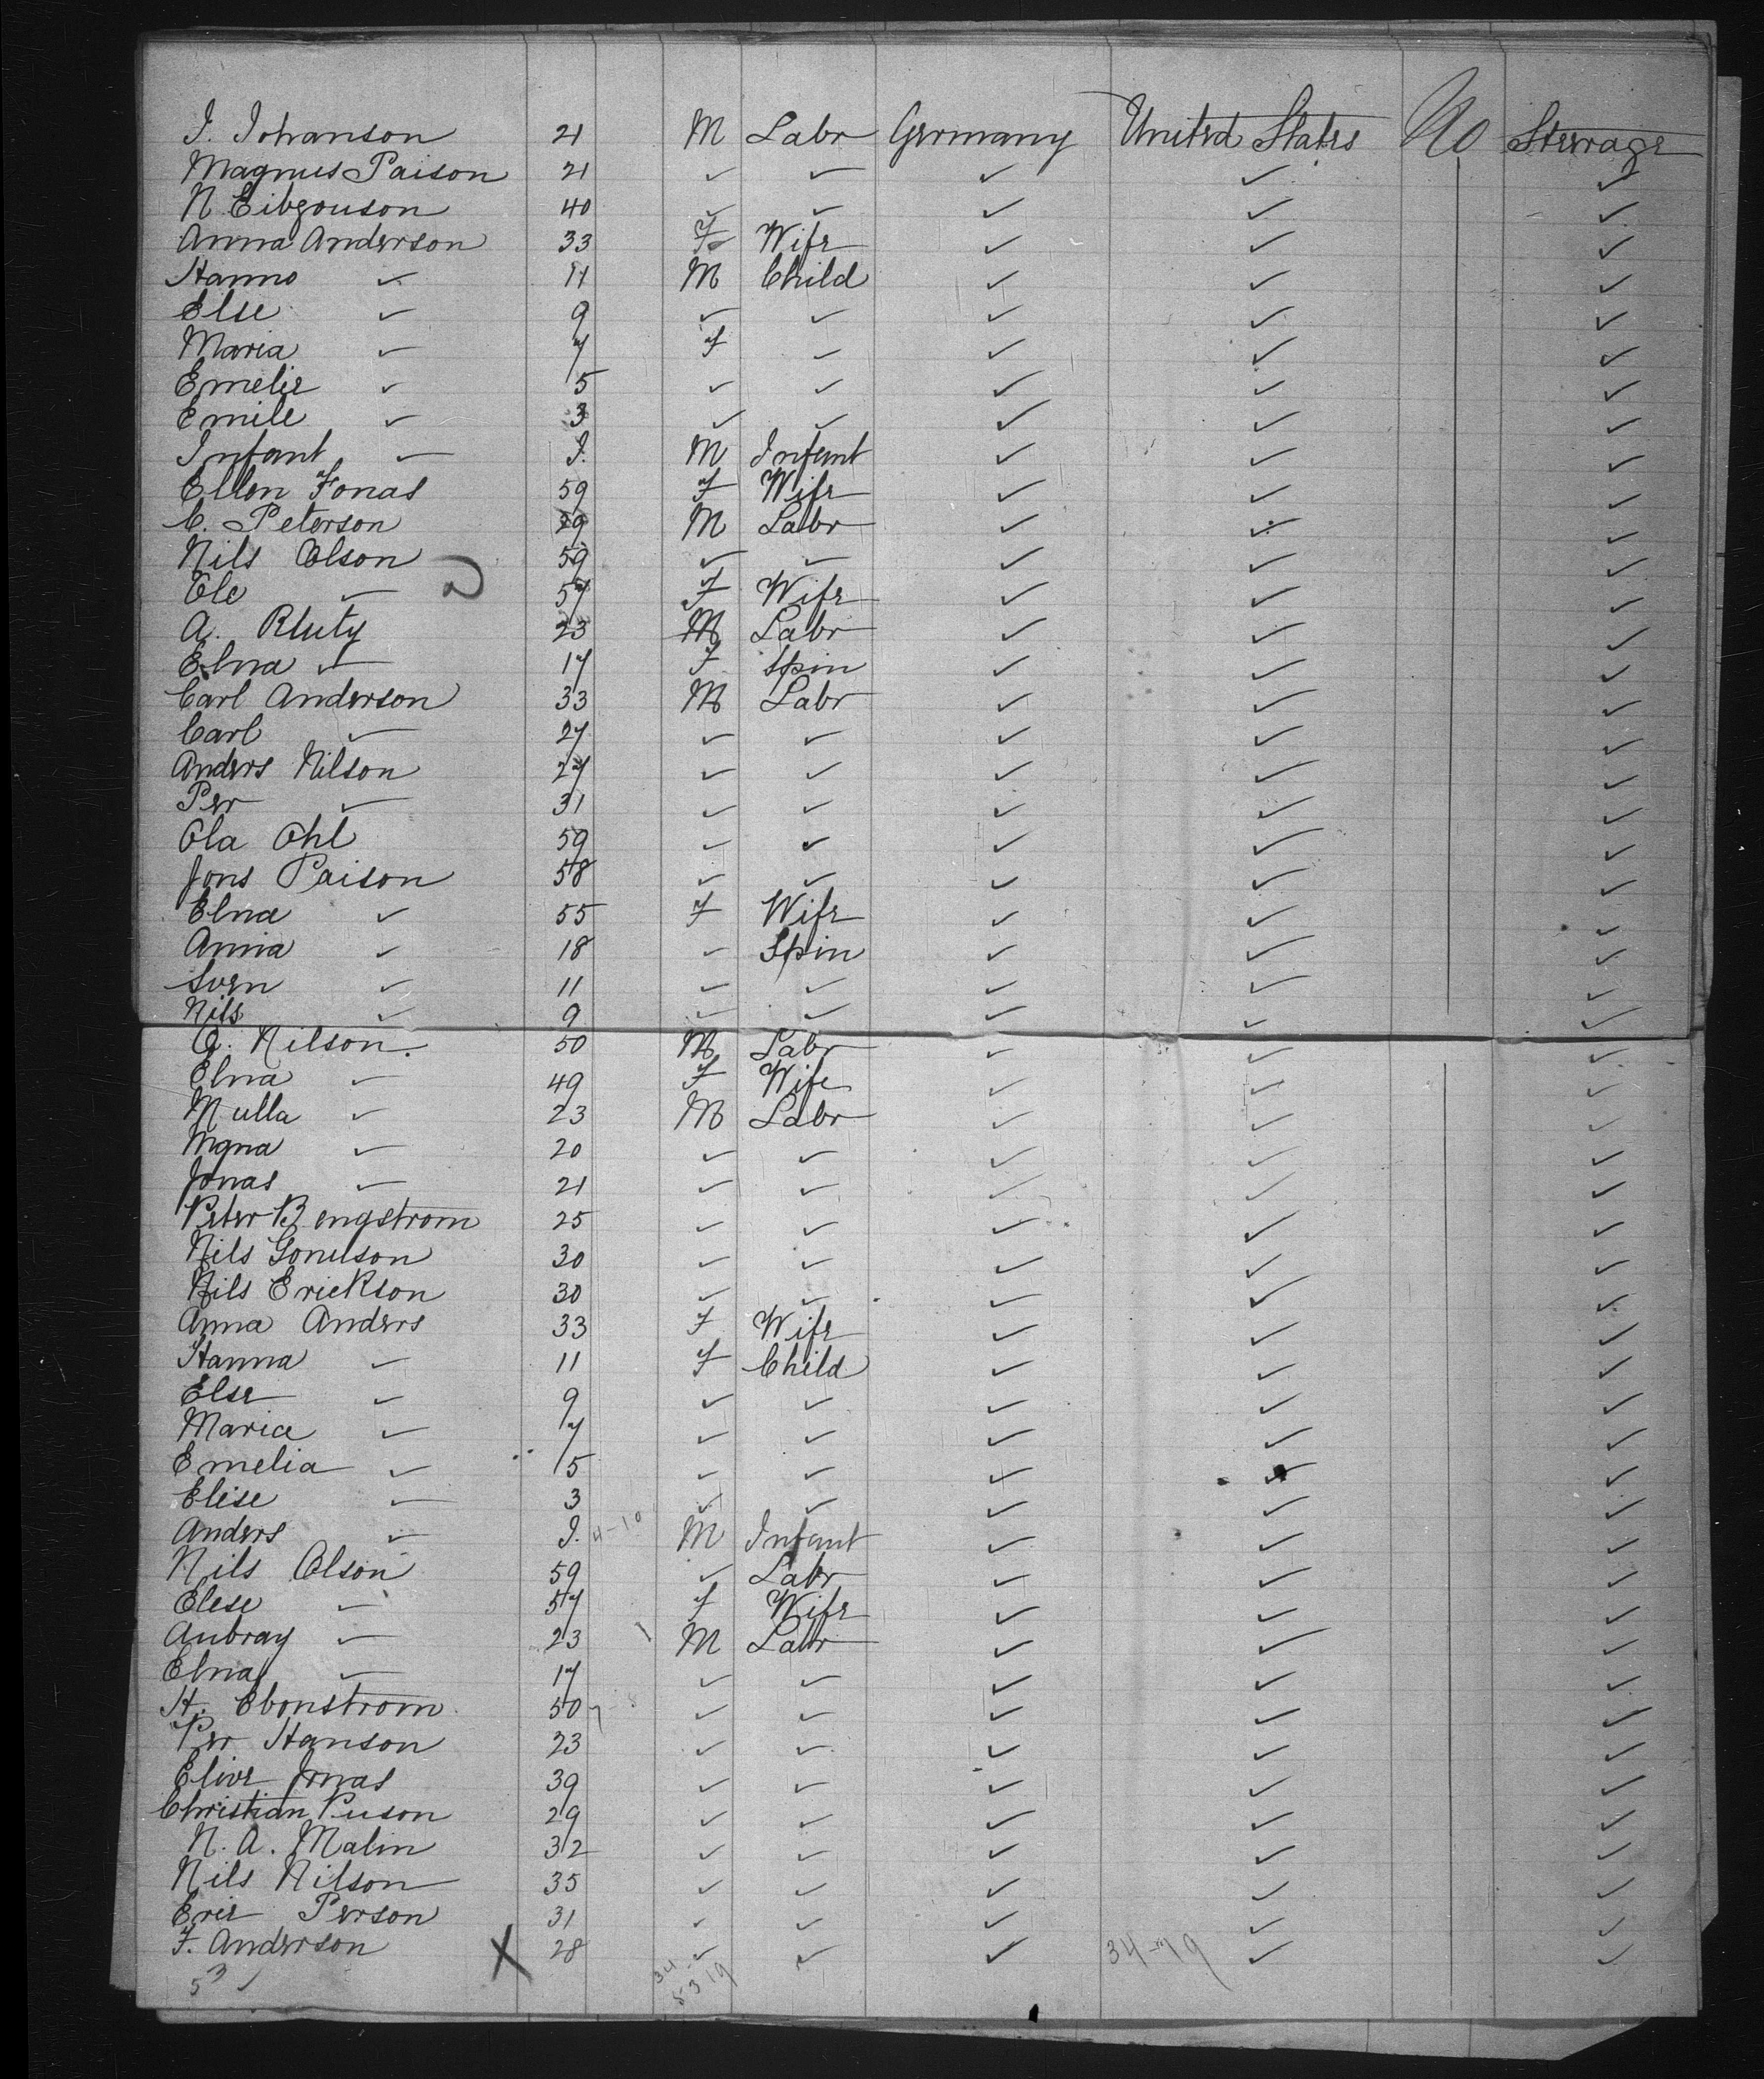 I. Johanson 21 M Labr Germany United States No Steerage
Magnus Paison 21 ✓ ✓ ✓ ✓ ✓
N. Eibgouson 40 ✓ ✓ ✓ ✓ ✓
Anna Anderson 33 F Wife ✓ ✓ ✓
Hanno ✓ 11 M Child ✓ ✓ ✓
Else ✓ 9 ✓ ✓ ✓ ✓ ✓
Maria ✓ 7 F ✓ ✓ ✓ ✓
Emelie ✓ 5 ✓ ✓ ✓ ✓ ✓
Emile ✓ 3 ✓ ✓ ✓ ✓ ✓
Infant ✓ I. M Infant ✓ ✓ ✓
Ellen Jonas 59 F Wife ✓ ✓ ✓
C. Peterson 29 M Labr ✓ ✓ ✓
Nils Olson 59 ✓ ✓ ✓ ✓ ✓
Ele ✓ 57 F Wife ✓ ✓ ✓
A. Rluty 23 M Labr ✓ ✓ ✓
Elna ✓ 17 F Spin ✓ ✓ ✓
Carl Anderson 33 M Labr ✓ ✓ ✓
Carl ✓ 27 ✓ ✓ ✓ ✓ ✓
Anders Nilson 27 ✓ ✓ ✓ ✓ ✓
Per ✓ 31 ✓ ✓ ✓ ✓ ✓
Ola Ohl 59 ✓ ✓ ✓ ✓ ✓
Jons Paison 58 ✓ ✓ ✓ ✓ ✓
Elna ✓ 55 F Wife ✓ ✓ ✓
Anna ✓ 18 ✓ Spin ✓ ✓ ✓
Sven ✓ 11 ✓ ✓ ✓ ✓ ✓
Nils ✓ 9 ✓ ✓ ✓ ✓ ✓
O. Nilson. 50 M Labr ✓ ✓ ✓
Elna ✓ 49 F Wife ✓ ✓ ✓
Nulla ✓ 23 M Labr ✓ ✓ ✓
Mgna ✓ 20 ✓ ✓ ✓ ✓ ✓
Jonas ✓ 21 ✓ ✓ ✓ ✓ ✓
Peter Bengstrom 25 ✓ ✓ ✓ ✓ ✓
Nils 30 ✓ ✓ ✓ ✓ ✓
Nils Erickson 30 ✓ ✓ ✓ ✓ ✓
Anna Anders 33 F Wife ✓ ✓ ✓
Hanna ✓ 11 F Child ✓ ✓ ✓
Else ✓ 9 ✓ ✓ ✓ ✓ ✓
Maria ✓ 7 ✓ ✓ ✓ ✓ ✓
Emelia ✓ 5 ✓ ✓ ✓ ✓ ✓
Elise ✓ 3 ✓ ✓ ✓ ✓ ✓
Anders ✓ I. 4-10 M Infant ✓ ✓ ✓
Nils Olson 59 ✓ Labr ✓ ✓ ✓
Elese ✓ 57 F Wife ✓ ✓ ✓
Aubray ✓ 23 M Labr ✓ ✓ ✓
Elna ✓ 17 ✓ ✓ ✓ ✓ ✓
H. Ebonstrom 50 ✓ ✓ ✓ ✓ ✓
Per Hanson 23 ✓ ✓ ✓ ✓ ✓
Elive Jonas 39 ✓ ✓ ✓ ✓ ✓
Christian Puson 29 ✓ ✓ ✓ ✓ ✓
N. A. Malin 32 ✓ ✓ ✓ ✓ ✓
Nils Nilson 35 ✓ ✓ ✓ ✓ ✓
Erie Person 31 ✓ ✓ ✓ ✓ ✓
F. Anderson X 28 ✓ ✓ ✓ 34-19 ✓ ✓
53 ✓ 34 53 19